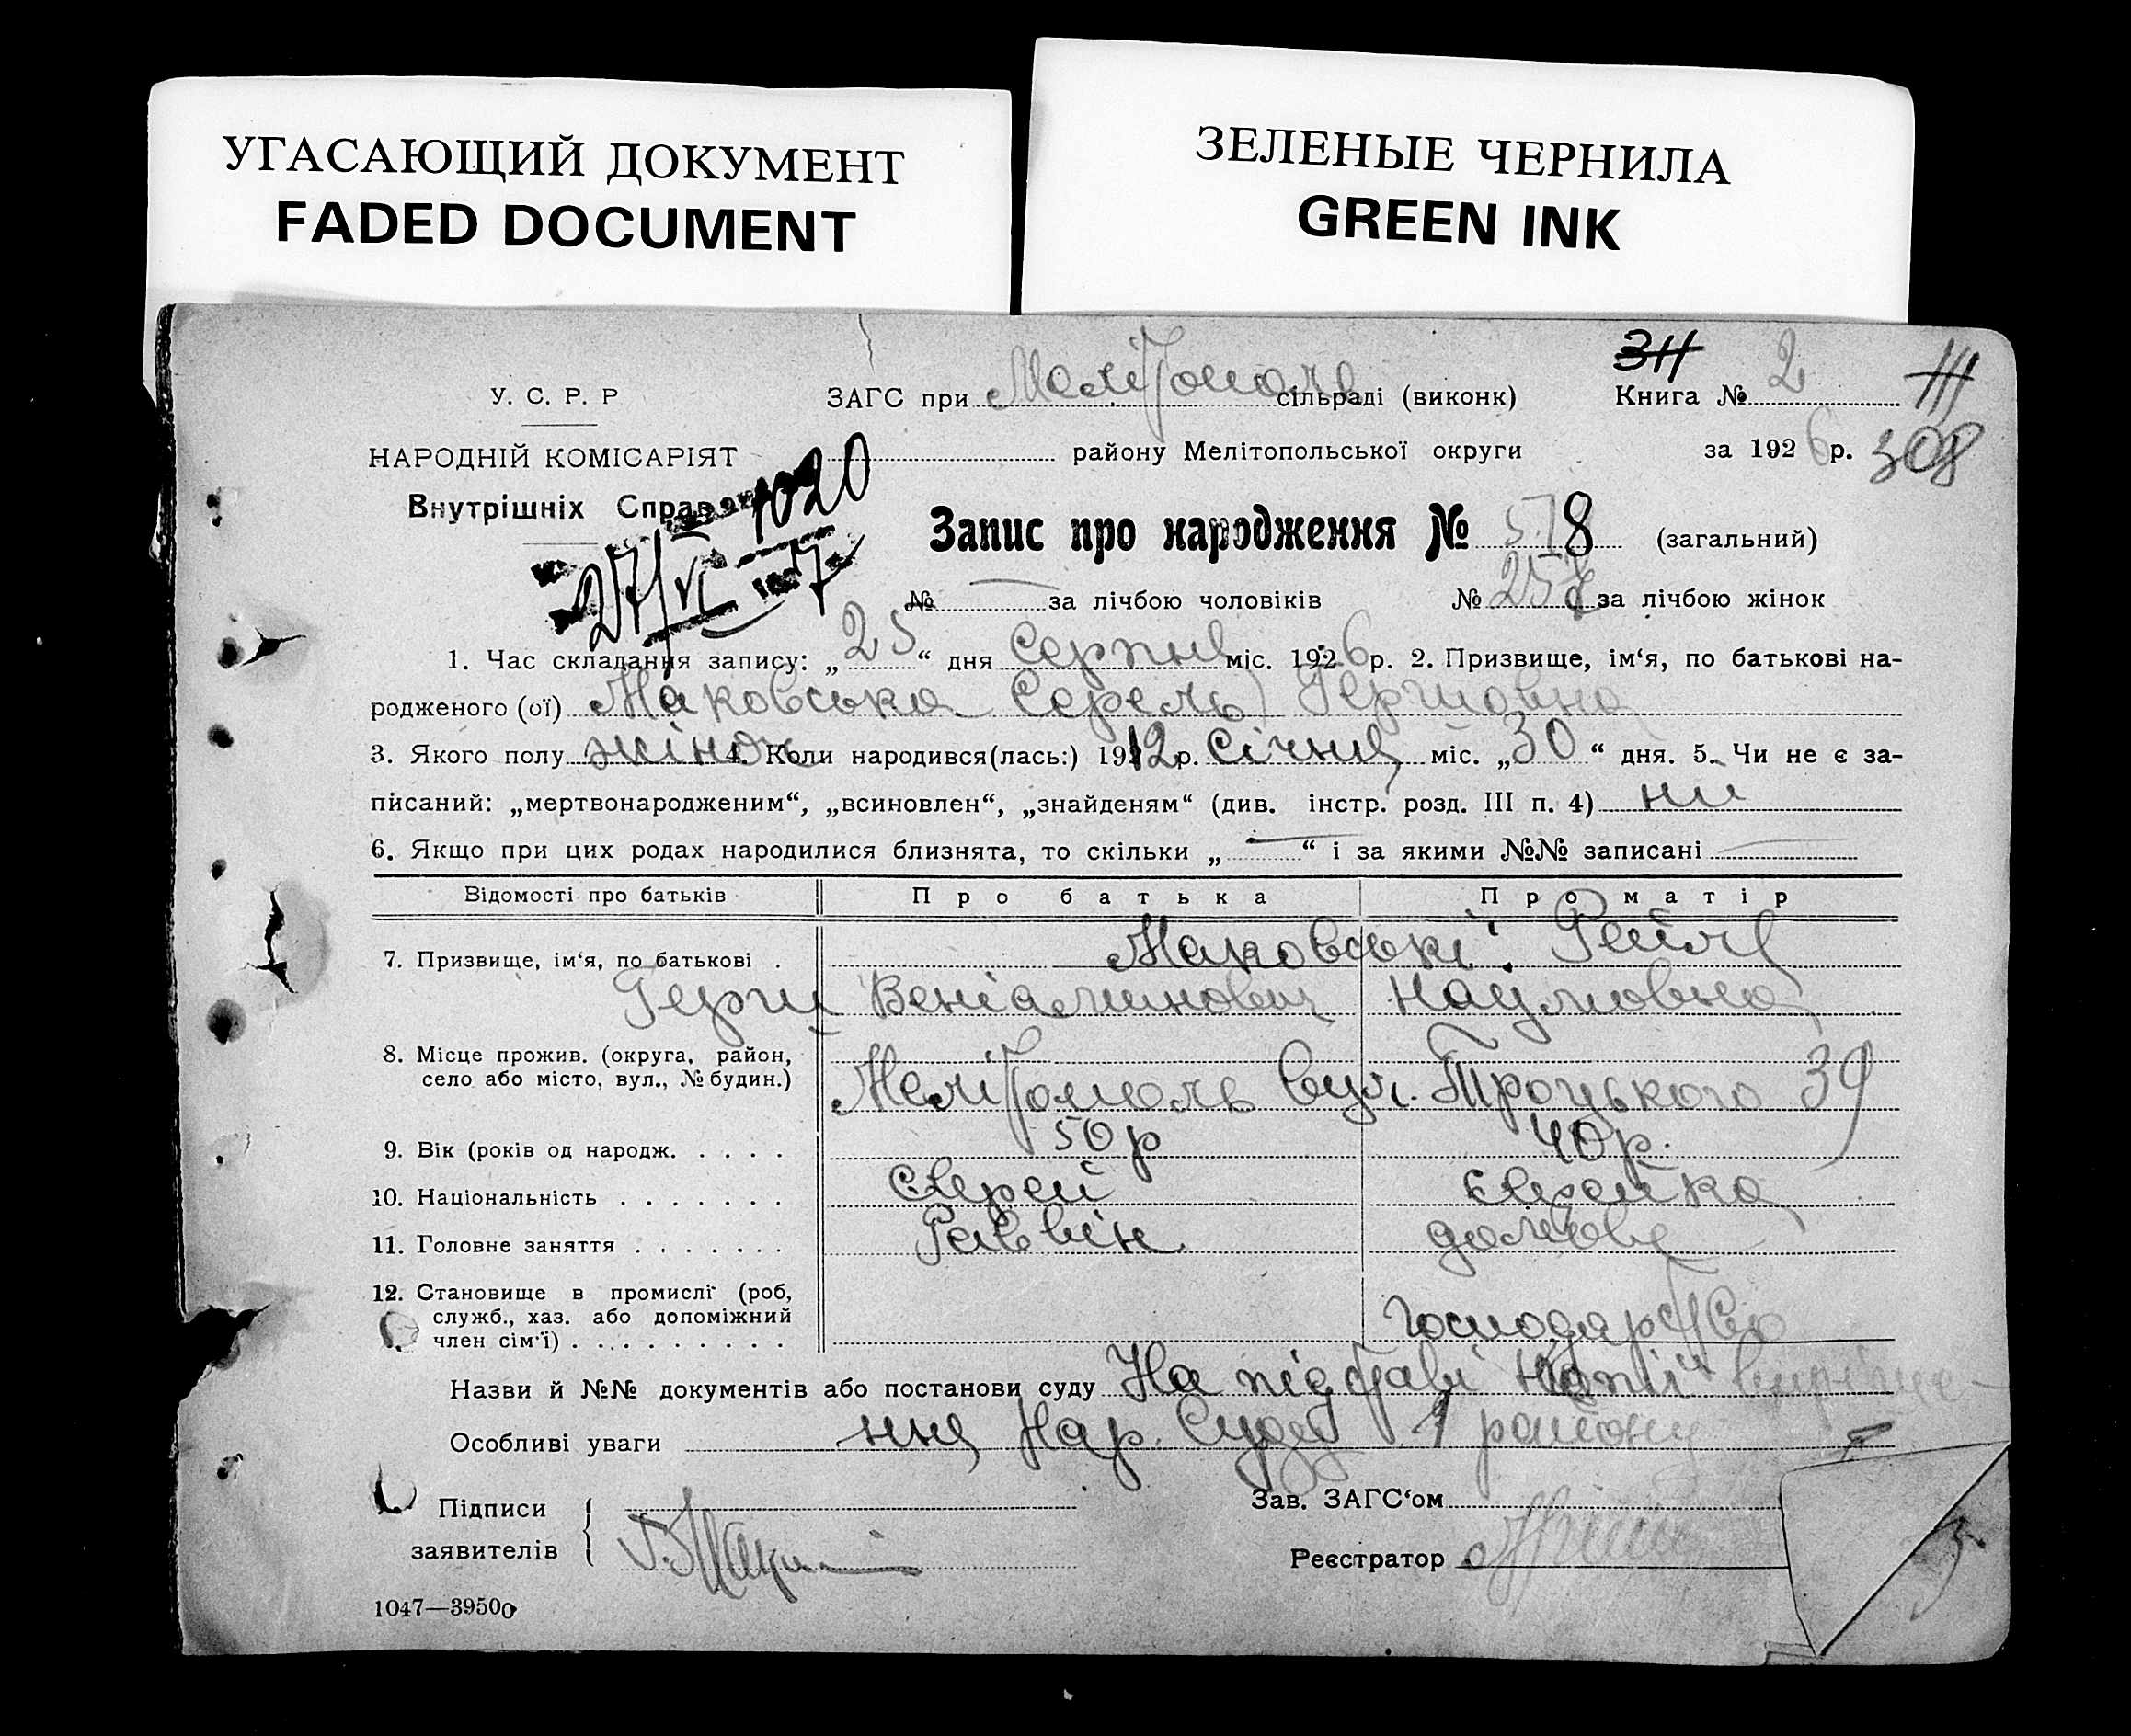 УГАСАЮЩИЙ ДОКУМЕНТ
FADED DOCUMENT
ЗЕЛЕНЫЕ ЧЕРНИЛА
GREEN INK
У. С. Р. Р
НАРОДНІЙ КОМІСАРІЯТ
Внутрішніх Справ
1020
27/VI
ЗАГС при Мелітополь сільраді (виконк)
району Мелітопольської округи
ЗН
Книга № 2
за 1926 р. 308
Запис про народження № 578 (загальний)
№ — за лічбою чоловіків № 257 за лічбою жінок
1. Час складання запису: „25“ дня Серпня міс. 1926 р. 2. Призвище, ім‘я, по батькові на-
родженого (ої) Маковська Серель Гершовна
3. Якого полу жіноч 4. Коли народився(лась:) 1912 р. Січня міс. „30“ дня. 5. Чи не є за-
писаний: „мертвонародженим“, „всиновлен“, „знайденям“ (див. інстр. розд. III п. 4) ни
6. Якщо при цих родах народилися близнята, то скільки „—“ і за якими №№ записані —
Відомості про батьків Про батька Про матір
7. Призвище, ім‘я, по батькові . Маковські. Рейля
Герш Веніаминович Наумовна
8. Місце прожив. (округа, район,
село або місто, вул., № будин.) Мелітополь вул. Троцького 39
9. Вік (років од народж. . . . . 50 р 40 р.
10. Національність . . . . . . . Єврей Єврейка
11. Головне заняття . . . . . . . Раввін домове
12. Становище в промислі (роб,
служб., хаз. або допоміжний
член сім‘ї) . . . . . . . . . господарство
Назви й №№ документів або постанови суду На підставі копії вирішe-
Особливі уваги ння Нар. Суду 1 району
Підписи
заявителів
Зав. ЗАГС‘ом
Реєстратор
1047—39500